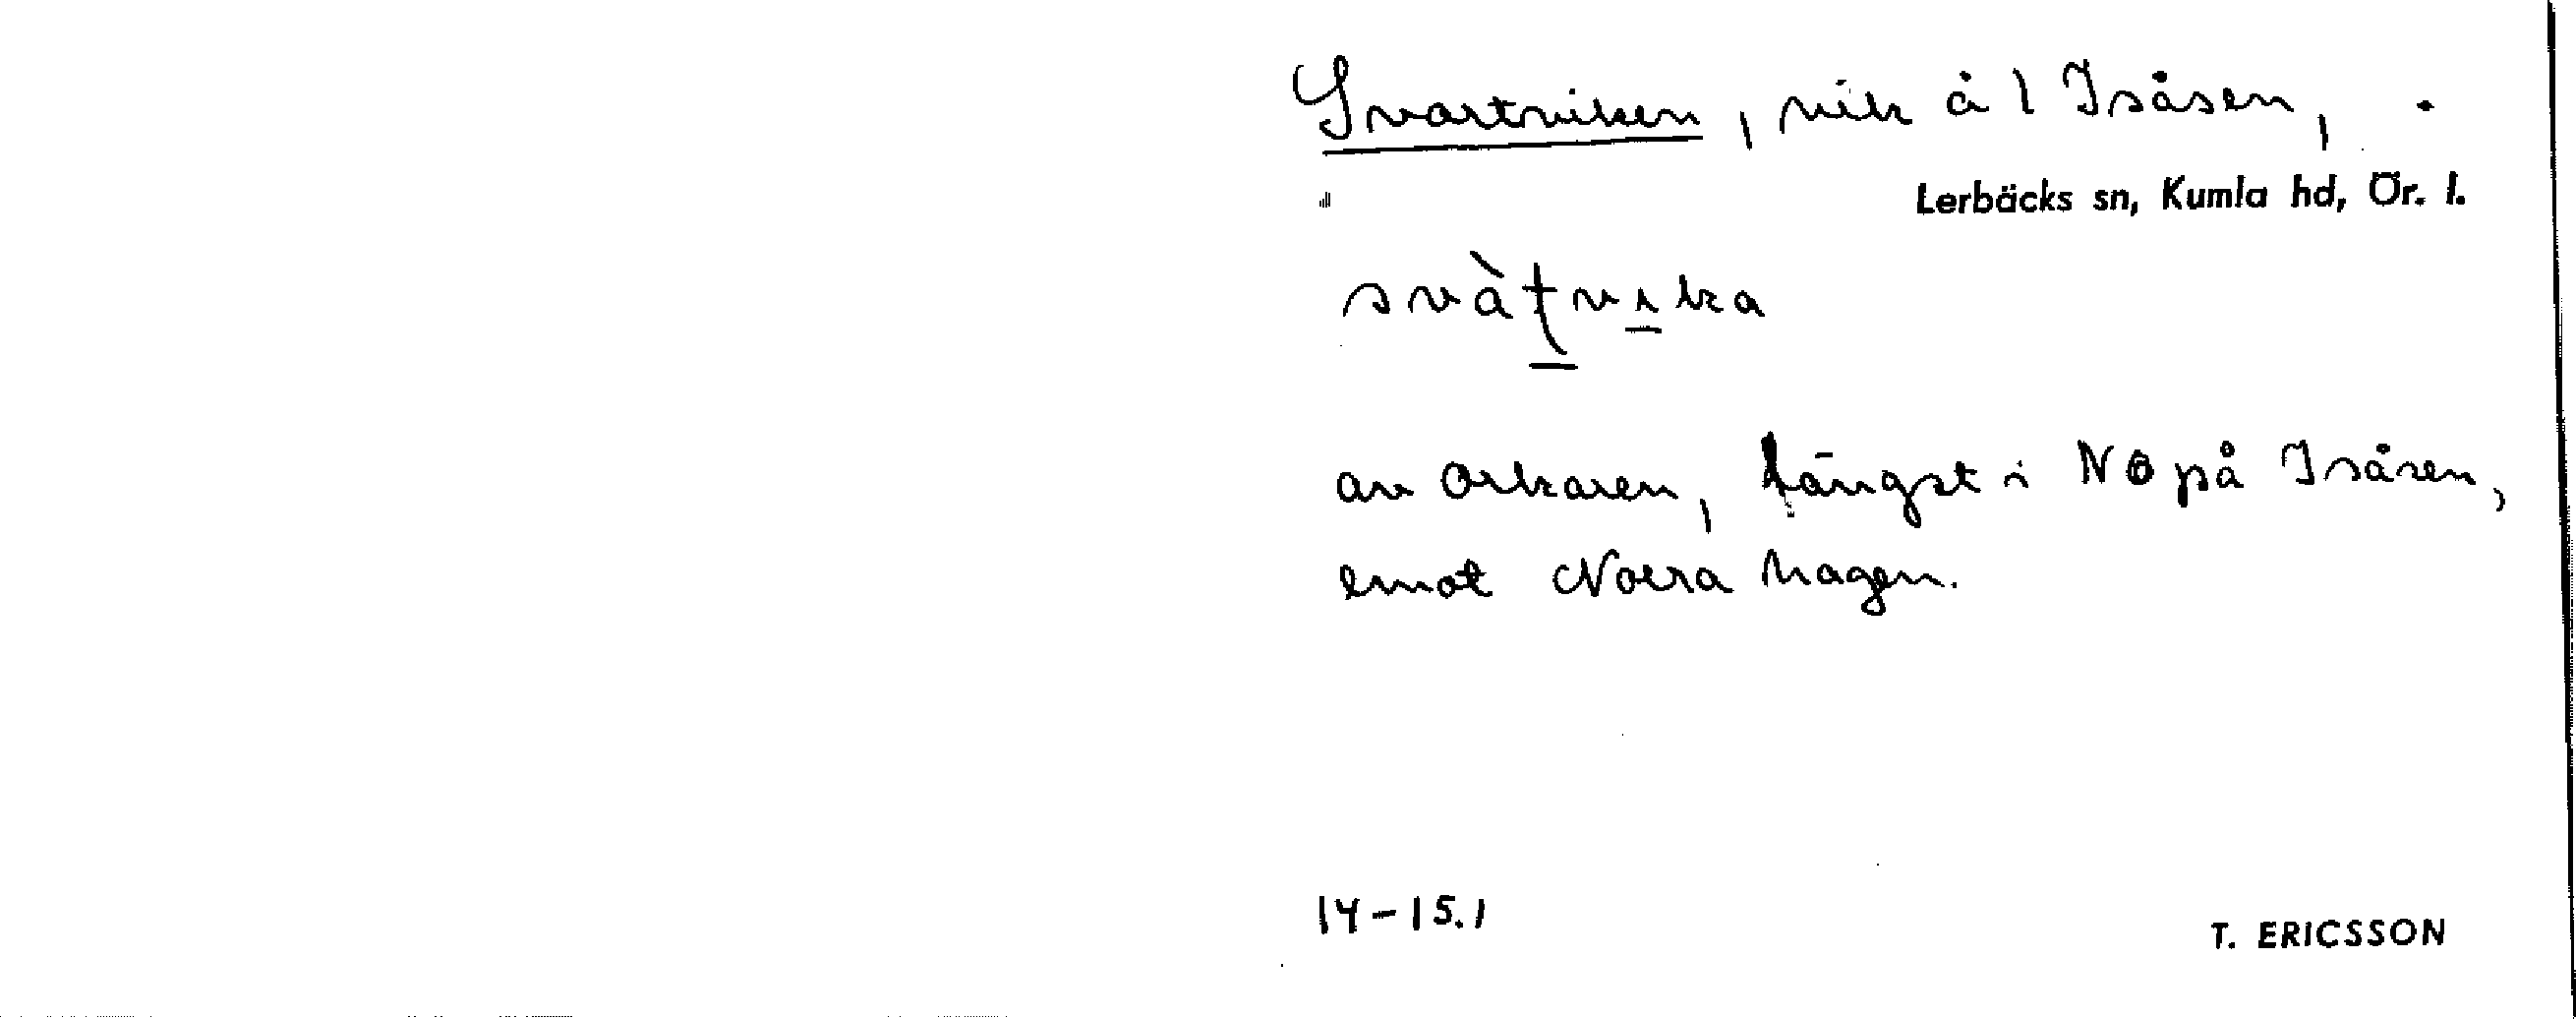 Svartviken, vik å l Isåsen,
Lerbäcks sn, Kumla hd, Ör. l.
svàtvıka
av Orkaren, längst i NO på Isåsen,
emot Norra hagen.
14-15.1
T. ERICSSON